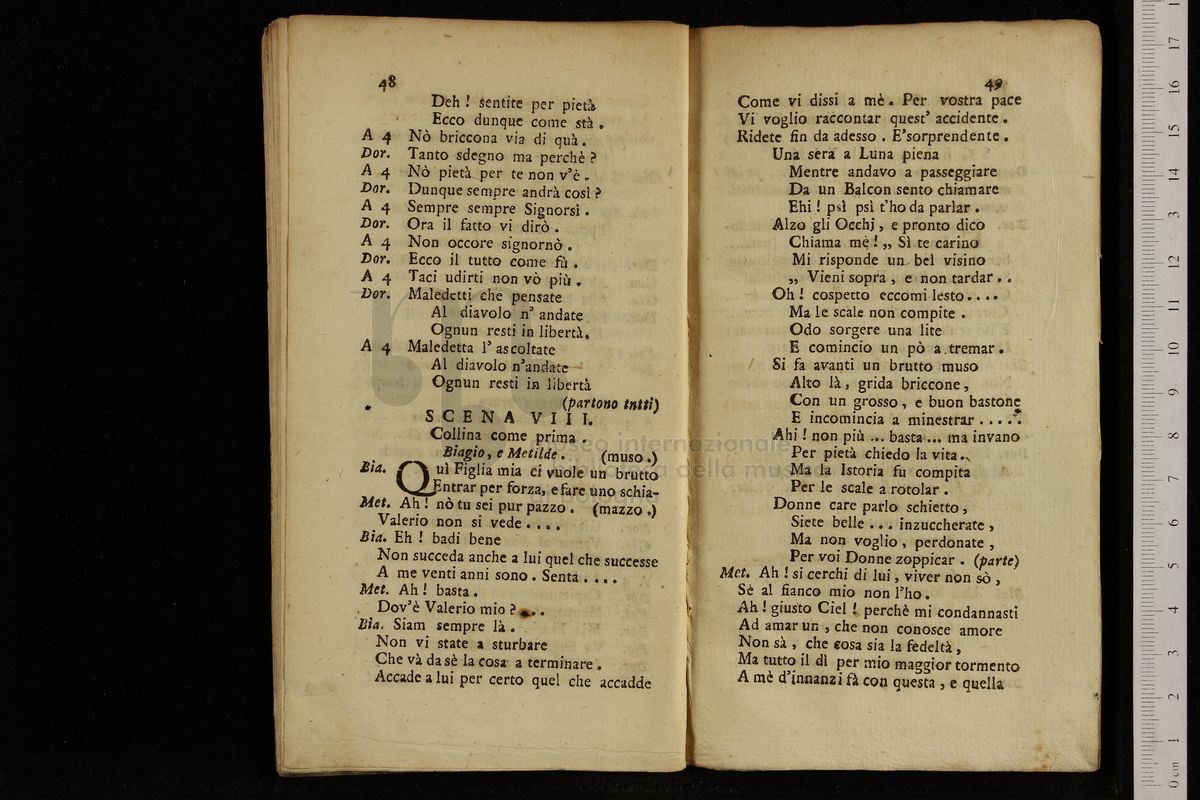 48
Deh ! sentite per pietà
Ecco dunque come stà .
A 4 Nò briccona via di quà .
Dor. Tanto sdegno ma perchè ?
A 4 Nò pietà per te non v'è .
Dor. Dunque sempre andrà così ?
A 4 Sempre sempre Signorsì .
Dor. Ora il fatto vi dirò .
A 4 Non occore signornò .
Dor. Ecco il tutto come fù .
A 4 Taci udirti non vò più .
Dor. Maledetti che pensate
Al diavolo n' andate
Ognun resti in libertà.
A 4 Maledetta l' ascoltate
Al diavolo n'andate
Ognun resti in libertà
(partono tntti)
SCENA VIII.
Collina come prima .
Biagio, e Metilde . (muso .)
Bia. Quì Figlia mia ci vuole un brutto
Entrar per forza, e fare uno schia-
Met. Ah ! nò tu sei pur pazzo . (mazzo .)
Valerio non si vede . . . .
Bia. Eh ! badi bene
Non succeda anche a lui quel che successe
A me venti anni sono . Senta . . . .
Met. Ah ! basta .
Dov'è Valerio mio ? . . .
Bia. Siam sempre là .
Non vi state a sturbare
Che và da sè la cosa a terminare .
Accade a lui per certo quel che accadde
49
Come vi dissi a mè . Per vostra pace
Vi voglio raccontar quest' accidente .
Ridete fin da adesso . E'sorprendente .
Una sera a Luna piena
Mentre andavo a passeggiare
Da un Balcon sento chiamare
Ehi ! psì psì t'ho da parlar .
Alzo gli Occhj , e pronto dico
Chiama mè ! „ Sì te carino
Mi risponde un bel visino
„ Vieni sopra , e non tardar . .
Oh ! cospetto eccomi lesto . . . .
Ma le scale non compite .
Odo sorgere una lite
E comincio un pò a tremar .
Si fa avanti un brutto muso
Alto là , grida briccone ,
Con un grosso , e buon bastone
E incomincia a minestrar . . . . .
Ahi ! non più ... basta ... ma invano
Per pietà chiedo la vita . .
Ma la Istoria fu compita
Per le scale a rotolar .
Donne care parlo schietto ,
Siete belle . . . inzuccherate ,
Ma non voglio , perdonate ,
Per voi Donne zoppicar . (parte)
Met. Ah ! si cerchi di lui , viver non sò ,
Sè al fianco mio non l'ho .
Ah ! giusto Ciel ! perchè mi condannasti
Ad amar un , che non conosce amore
Non sà , che cosa sia la fedeltà ,
Ma tutto il dì per mio maggior tormento
A mè d'innanzi fà con questa , e quella